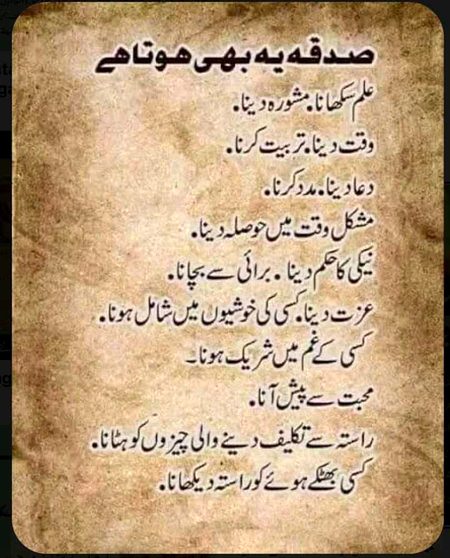 صدقہ یہ بھی ہوتا ہے
علم سکھانا۔ مشورہ دینا۔
وقت دینا۔ تربیت کرنا۔
دعا دینا۔ مدد کرنا۔
مشکل وقت میں حوصلہ دینا۔
نیکی کا حکم دینا ۔ برائی سے بچانا۔
عزت دینا۔ کسی کی خوشیوں میں شامل ہونا۔
کسی کے غم میں شریک ہونا۔
محبت سے پیش آنا۔
راستہ سے تکلیف دینے والی چیزوں کو ہٹانا۔
کسی بھٹکے ہوئے کو راستہ دیکھانا۔